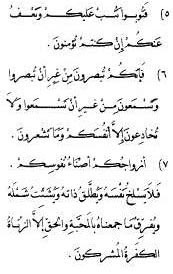 (٥) فتوبوا نتب عليكم ونعف
عنكم إن كنتم تؤمنون.
(٦) فإنكم تبصرون من غير أن تبصروا
وتسمعون من غير أن تسمعوا ولا
تخادعون إلا أنفسكم وما تشعرون.
(٧) أزواجكم أصناء نفوسكم.
فلا يسلخ نفسه ويطلق ذاته ويشتت شمله
ويفرق ما جمعناه بالمحبة والحق إلا الزناة
الكفرة المشركون.